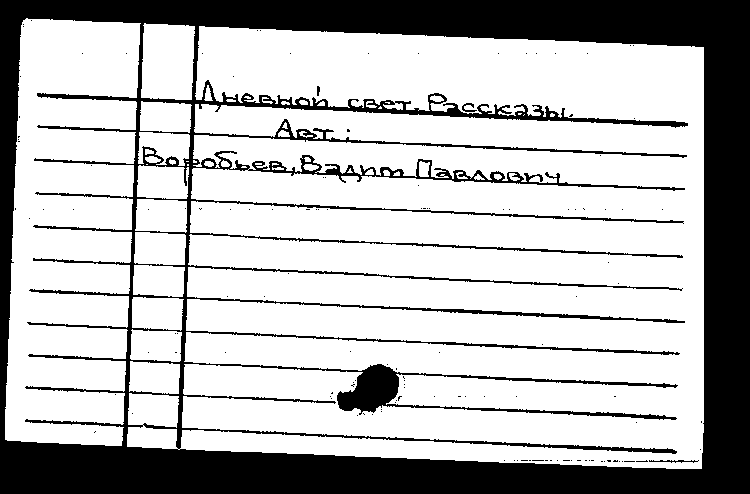 Дневной свет. Рассказы.
Авт.:
Воробьев, Вадим Павлович